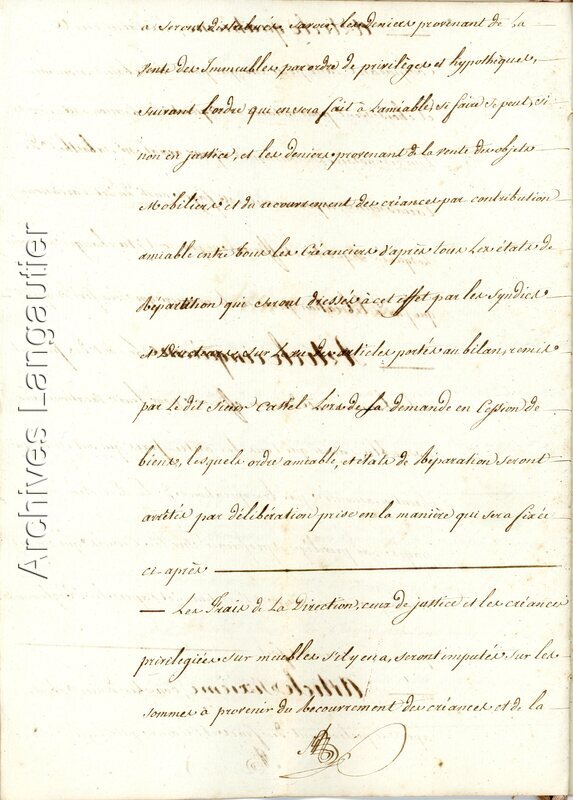 à seront distribués savoir les deniers provenant de La
Vente des Immeubles par ordre de privilèges et hypothèques,
suivant l'ordre qui en sera fait à L'amiable, si faire se peut, si
non en justice, et les deniers provenant de la vente des objets
Mobiliers et du recouvrement des créances par contribution
amiable entre tous les Créanciers d'après tous Les états de
Répartition qui seront dressés à cet effet par les Syndics
et Directeurs, sur articles portés au bilan, remis
par Le dit Sieur Castel Lors de sa demande en Cession de
biens, lesquels ordre amiable, et états de Réparation seront
arrêtés par délibération prise en la manière qui sera fixée
ci-après
— Les Frais de La Direction, ceux de justice et les créances
privilégiées sur meubles s'il y en a, seront imputés sur les
sommes à provenir du Recouvrement des créances et de la
Archives Langautier